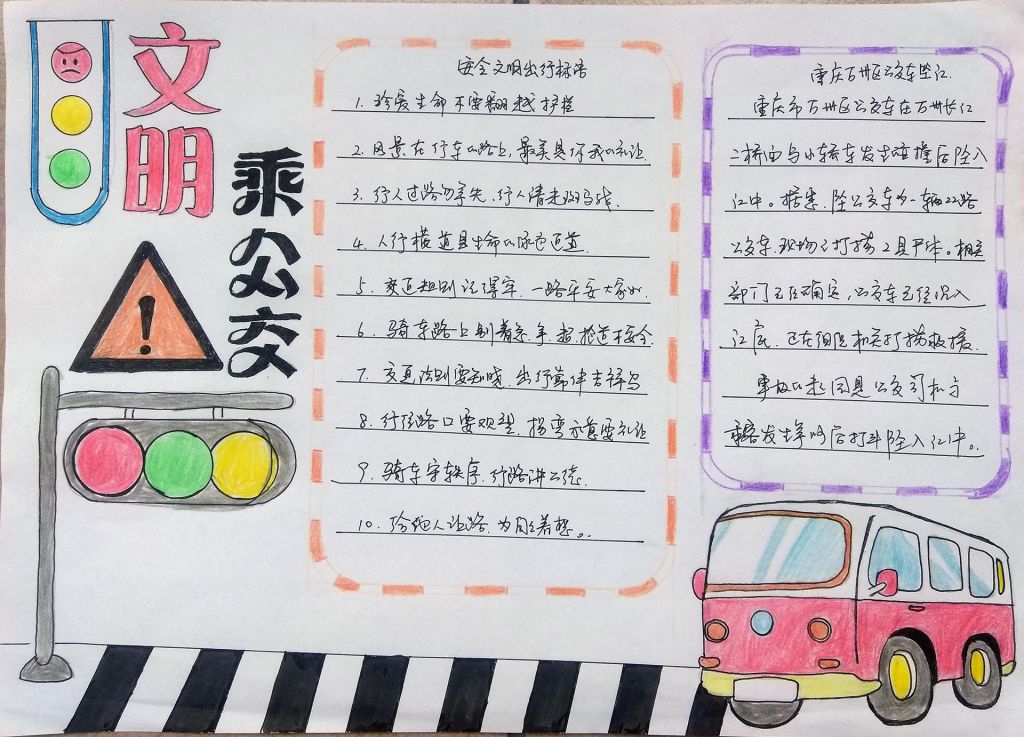 文明
乘公交
安全文明出行标语
1. 珍爱生命 不要翻越护栏
2. 风景在行车的路上,最美是你我的礼让.
3. 行人过路勿争先,行人请走斑马线.
4. 人行横道是生命的绿色通道
5. 交通规则记得牢,一路平安大家好.
6. 骑车路上别着急 争 超 抢道不安全
7. 交通法则要知晓 出行靠伴吉祥鸟
8. 行径路口要观望, 拐弯示意要礼让
9. 骑车守秩序,行路讲公德.
10. 给他人让路 为自己着想。
重庆万州区公交车坠江.
重庆市万州区公交车在万州长江
二桥面与小轿车发生碰撞后坠入
江中。据悉 坠公交车为一辆22路
公交车,现场已打捞2具尸体。相关
部门已经确定,公交车已经沉入
江底,已在组织相关打捞救援.
事故的起因是公交司机与
乘客发生争吵后打斗坠入江中。